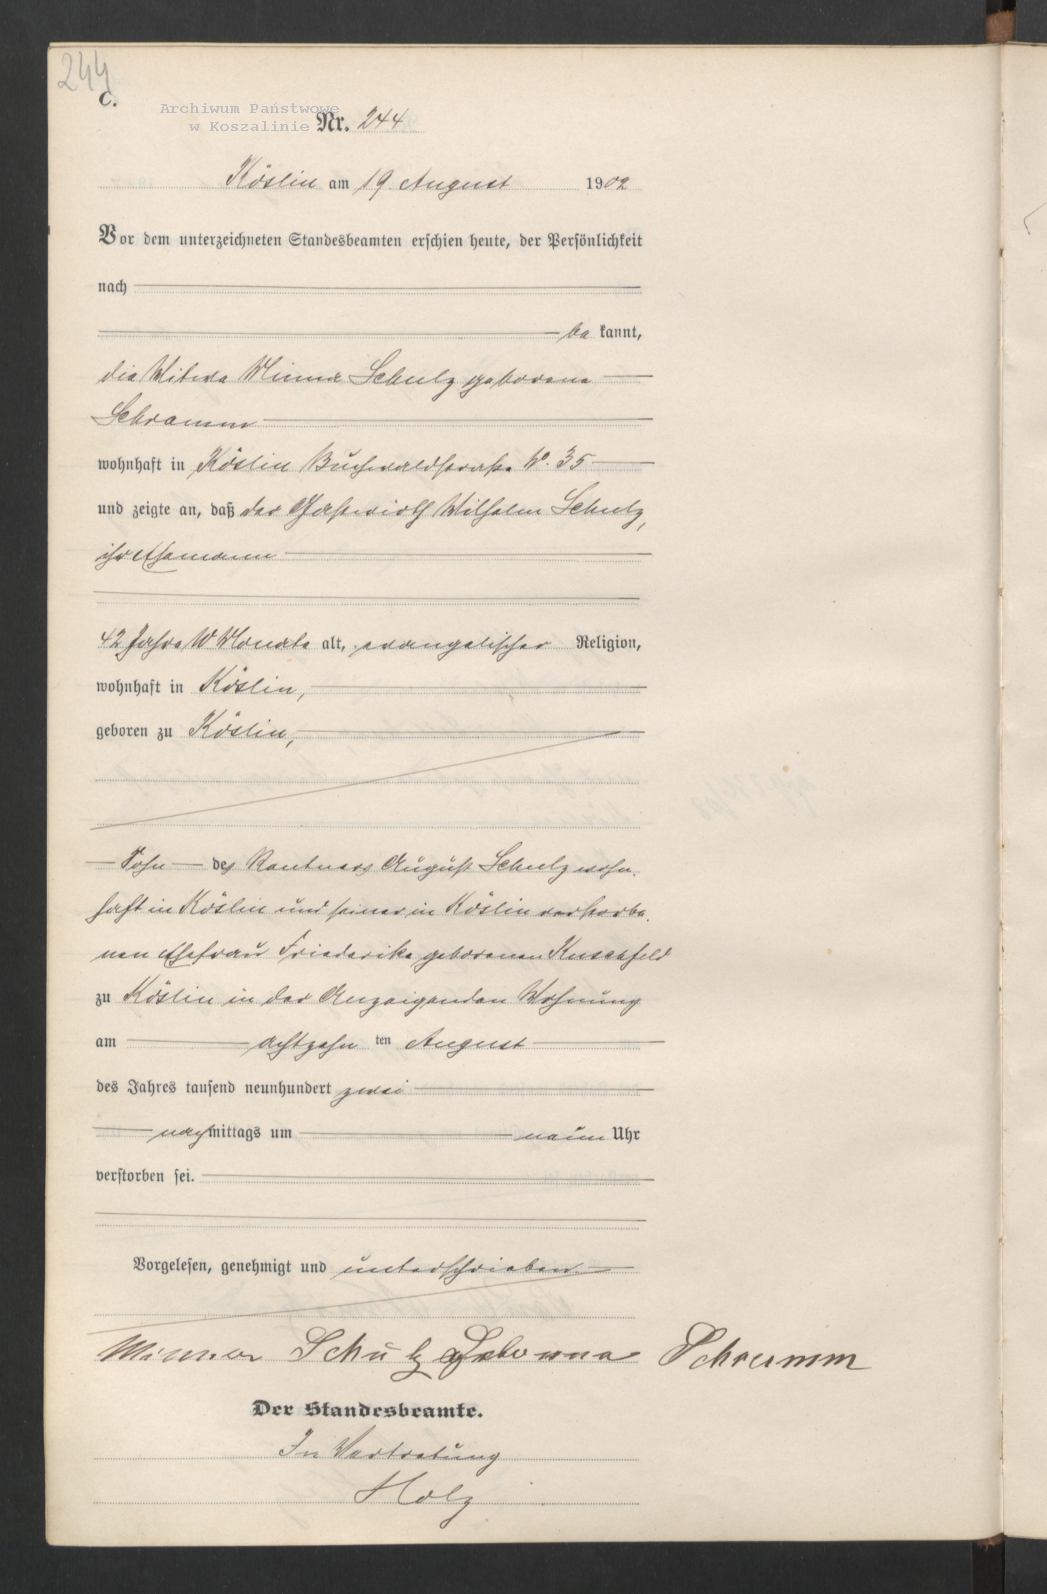 244
C.
Archiwum Państwowe
w Koszalinie
Nr. 244
Köslin am 19 August 1902
Vor dem unterzeichneten Standesbeamten erschien heute, der Persönlichkeit
nach
be kannt,
die Witwe Minna Schulz geborene
Schramm
wohnhaft in Köslin Buchwaldstraße No. 35
und zeigte an, daß der Gastwirth Wilhelm Schulz,
ihr Ehemann
42 Jahre 10 Monate alt, evangelischer Religion,
wohnhaft in Köslin,
geboren zu Köslin,
Sohn des Rentners August Schulz wohn-
haft in Köslin und seiner in Köslin verstorbe-
nen Ehefrau Friederike geborenen
zu Köslin in der Anzeigenden Wohnung
am achtzehn ten August
des Jahres tausend neunhundert zwei
nachmittags um neun Uhr
verstorben sei.
Vorgelesen, genehmigt und unterschrieben
Minna Schulz Schramm
Der Standesbeamte.
In Vertretung
Holz